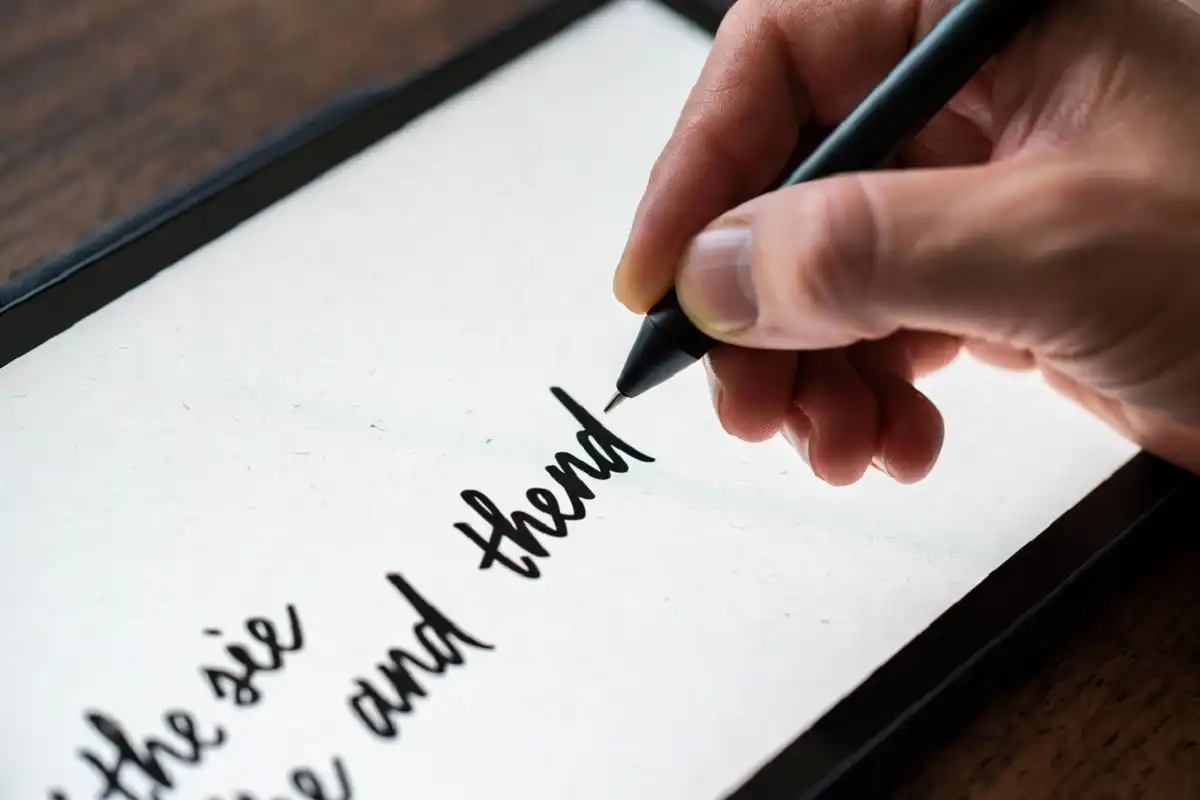 the sie
and thend